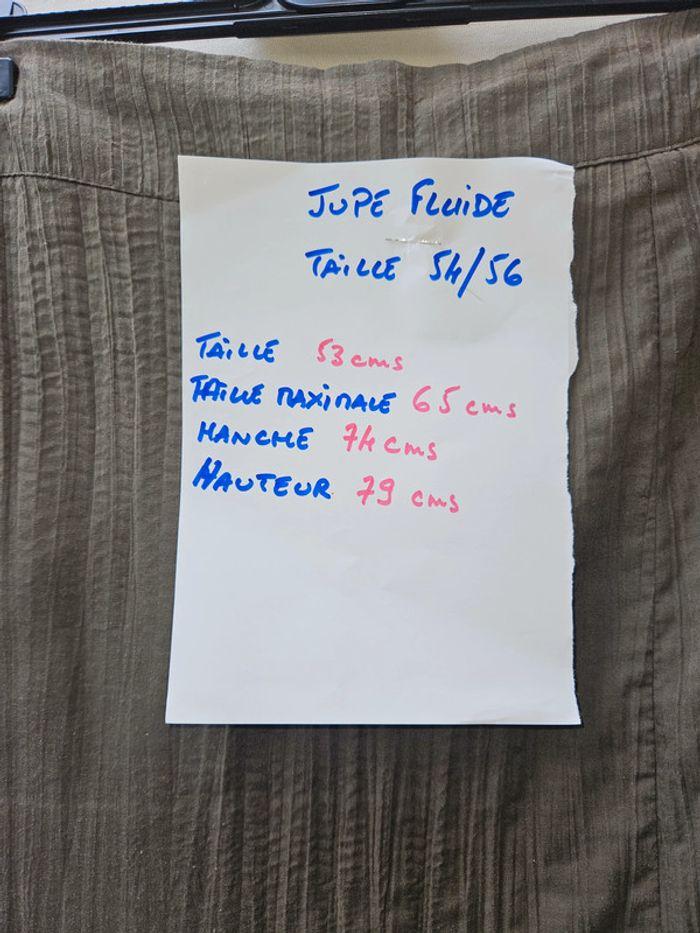 JUPE FLUIDE
TAILLE 54/56
TAILLE 53 cms
TAILLE MAXIMALE 65 cms
HANCHE 74 cms
HAUTEUR 79 cms